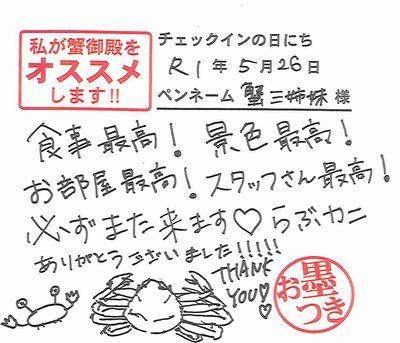 私が蟹御殿を
オススメ
します!!
チェックインの日にち
R1年5月26日
ペンネーム 蟹三姉妹 様
食事最高! 景色最高!
お部屋最高! スタッフさん最高!
必ずまた来ます♡らぶカニ
ありがとうございました!!!!!
THANK
YOU♡
お墨つき